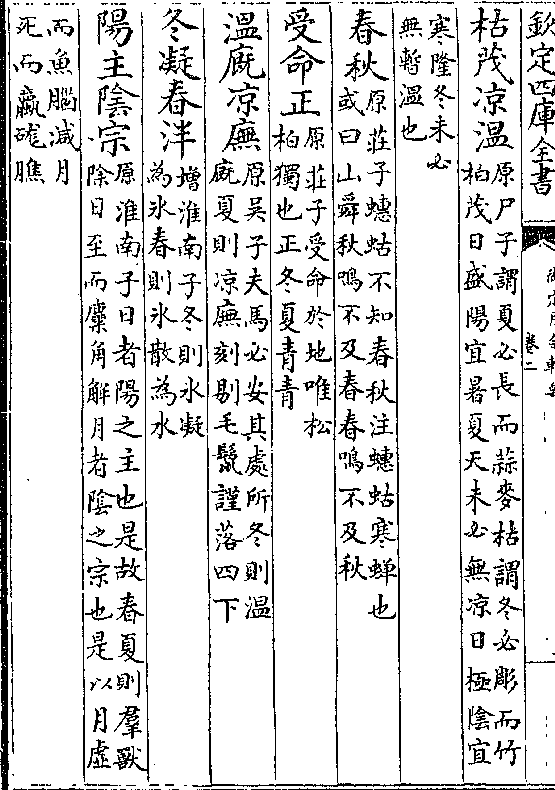 欽定四庫全書
卷二
枯茂凉溫原尸子謂夏必長而蒜麥枯謂冬必彫而竹
柏茂日盛陽宜暑夏天未必無凉日極陰宜
寒隆冬未必
無暫溫也
春秋原莊子蟪蛄不知春秋注蟪蛄寒蟬也
或曰山舜秋鳴不及春春鳴不及秋
受命正原莊子受命於地唯松
柏獨也正冬夏青青
溫廐凉廡原吳子夫馬必安其處所冬則溫
廐夏則凉廡刻剔毛鬛謹落四下
冬凝春泮增淮南子冬則氷凝
為氷春則氷散為水
陽主陰宗原淮南子日者陽之主也是故春夏則羣獸
除日至而麋角解月者陰之宗也是以月虚
而魚腦減月
死而蠃硥膲